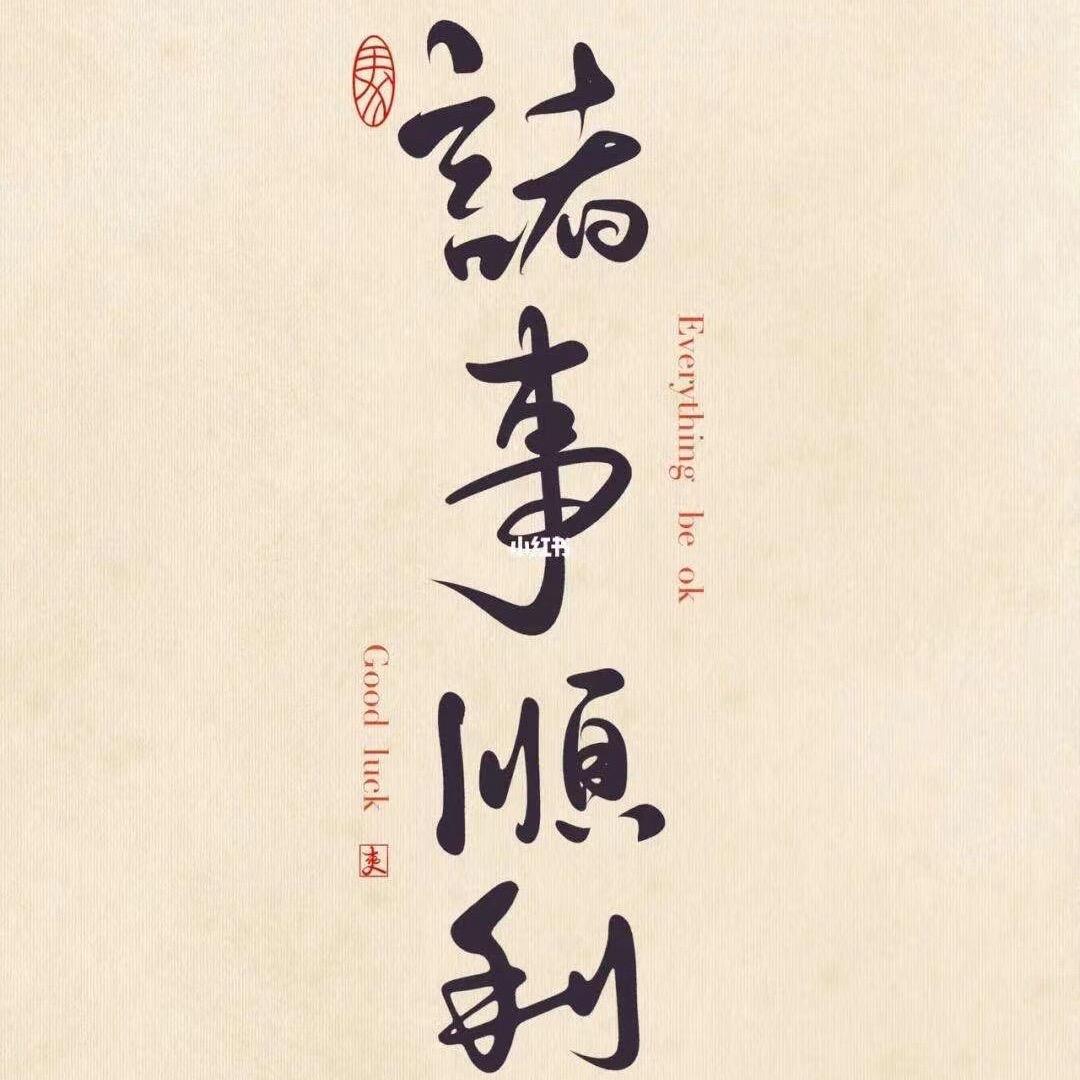 諸事順利
Everything be ok
Good luck
小红书